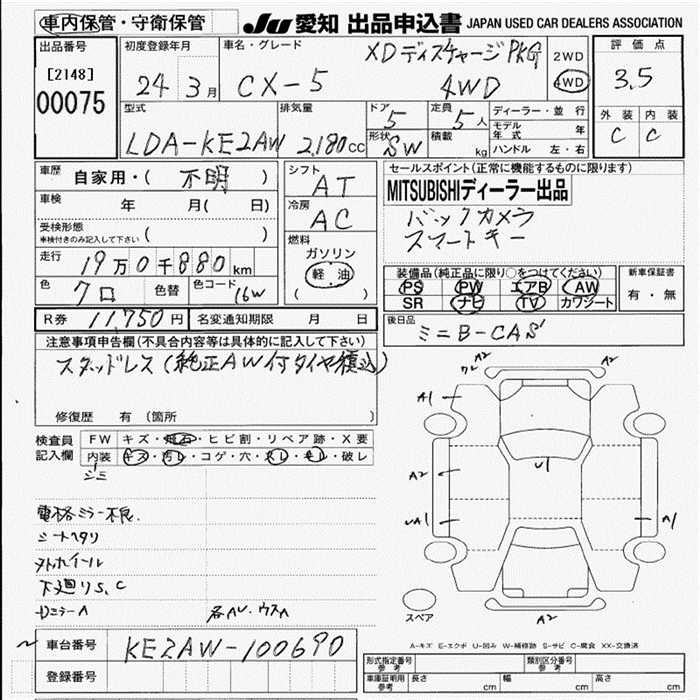 車内保管・守衛保管
JU 愛知 出品申込書 JAPAN USED CAR DEALERS ASSOCIATION
出品番号
[2148]
00075
初度登録年月
24 3月
車名・グレード
CX-5
XDディスチャージPKG
4WD
2WD
4WD
評価点
3.5
外装 内装
C C
型式
LDA-KE2AW
排気量
2,180cc
ドア
5
形状
SW
定員
5人
積載
kg
ディーラー・並行
モデル年式 年
ハンドル 左・右
車歴
自家用・( 不明 )
車検 年 月( 日)
受検形態
※車検付きのみ記入して下さい
( )
走行
19万0千880km
色
クロ
色替
色コード
16W
シフト
AT
冷房
AC
燃料
ガソリン
軽油
( )
セールスポイント(正常に機能するものに限ります)
MITSUBISHIディーラー出品
バックカメラ
スマートキー
装備品(純正品に限り○をつけてください)
PS PW エアB AW
SR ナビ TV カワシート
新車保証書
有・無
R券 11,750円
名変通知期限 月 日
後日品
ミニB-CAS
注意事項申告欄(不具合内容等は具体的に記入して下さい)
スタッドレス(純正AW付タイヤ積込)
修復歴 有 (箇所 )
検査員記入欄
FW キズ・飛石・ヒビ割・リペア跡・X要
内装 キズ・汚レ・コゲ・穴・スレ・キレ・破レ
シミ
電格ミラー不良.
シートヘタリ
外ホイール
下廻りS,C
各AU.ウスA
A1
A2
A2
U1
A2
A1
A2
スペア
車台番号
KE2AW-100690
登録番号
A-キズ E-エクボ U-凹み W-補修跡 S-サビ C-腐食 XX-交換済
形式指定番号 参考
類別区分番号 参考
車庫証明用 参考
長さ cm
幅 cm
高さ cm